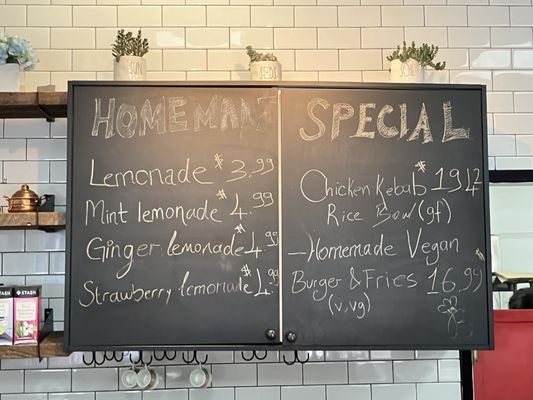 HOMEMADE
Lemonade $3.99
Mint lemonade $4.99
Ginger lemonade $4.99
Strawberry lemonade $4.99
SPECIAL
Chicken Kebab $19.12
Rice Bowl (gf)
- Homemade Vegan
Burger & Fries $16.99
(v,vg)
STASH
STASH
SEEDS